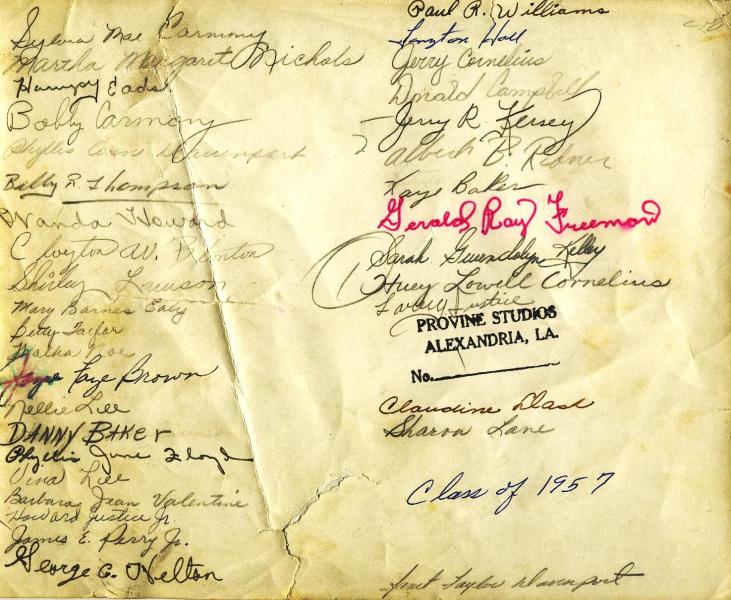 Sylvia Mae Carmony
Martha Margaret Nichols
Humpy Eads
Bobby Carmony
Phyllis Ann Davenport
Billy R. Thompson
Wanda Howard
Clayton W. Plinton
Shirley Lawson
Mary Barnes Ealy
Betty Taylor
Faye Brown
Nellie Lee
DANNY BAKEr
Phyllis June Floyd
Vina Lee
Barbara Jean Valentine
Howard Justice Jr
James E. Parry Jr.
George C. Nelton
Paul R. Williams
Langton Hall
Jerry Cornelius
Donald Campbell
Jerry R. Kersey
Albert B. Ridner
Kaye Baker
Gerald Ray Freeman
Sarah Gwendolyn Kelley
Huey Lowell Cornelius
Larry Justice
PROVINE STUDIOS
ALEXANDRIA, LA.
No.
Claudine Dlash
Sharon Lane
Class of 1957
Janet Taylor Davenport